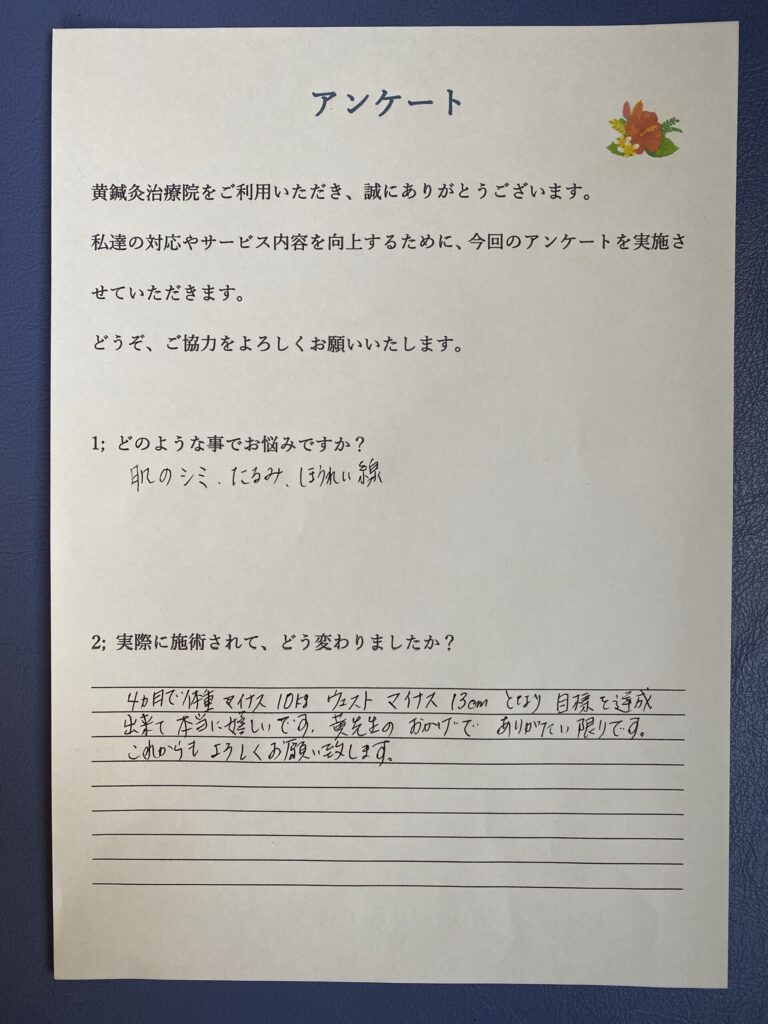 アンケート
黄鍼灸治療院をご利用いただき、誠にありがとうございます。
私達の対応やサービス内容を向上するために、今回のアンケートを実施さ
せていただきます。
どうぞ、ご協力をよろしくお願いいたします。
1; どのような事でお悩みですか？
肌のシミ、たるみ、ほうれい線
2; 実際に施術されて、どう変わりましたか？
4ヵ月で体重マイナス10kg ウエスト マイナス 13cm となり 目標を達成
出来て本当に嬉しいです。黄先生の おかげで ありがたい限りです。
これからも よろしくお願い致します。